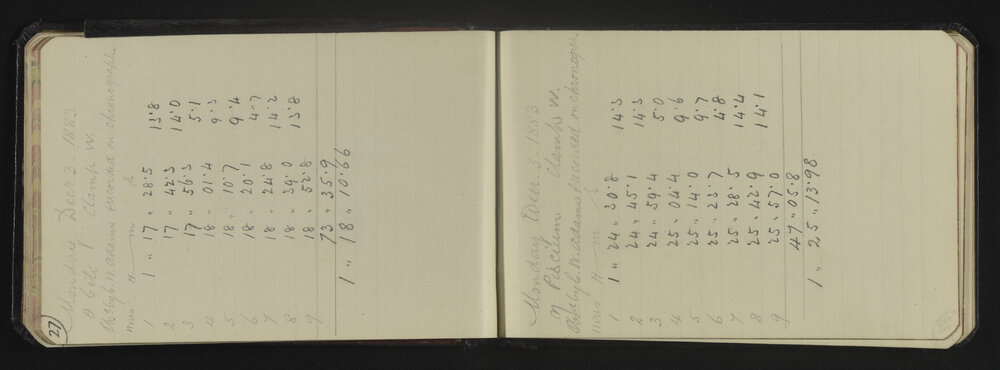 27
Monday Decr 3. 1883
θ Ceti Clamp W.
Obsd by C.W. Adams recorded on chronograph.
wires H m s
1 1 " 17 " 28.5 13.8
2 17 " 42.3 14.0
3 17 " 56.3 5.1
4 18 " 01.4 9.3
5 18 " 10.7 9.4
6 18 " 20.1 4.7
7 18 " 24.8 14.2
8 18 " 39.0 13.8
9 18 " 52.8
73 " 35.9
1 " 18 " 10.66
Monday Decr 3. 1883
η Piscium Clamp W.
Obsd by C.W. Adams recorded on chronogr.
wires H m s
1 1 " 24 " 30.8 14.3
2 24 " 45.1 14.3
3 24 " 59.4 5.0
4 25 " 04.4 9.6
5 25 " 14.0 9.7
6 25 " 23.7 4.8
7 25 " 28.5 14.4
8 25 " 42.9 14.1
9 25 " 57.0
47 " 05.8
1 " 25 " 13.98